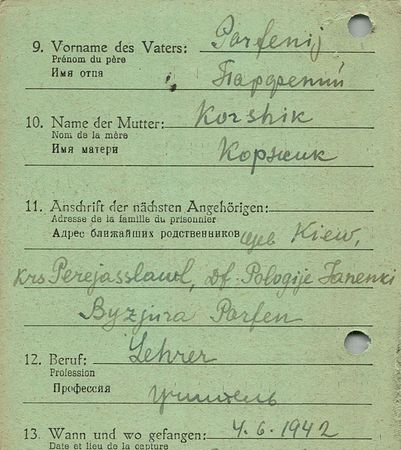 9. Vorname des Vaters: Parfenij
Prénom du père
Имя отца Парфений
10. Name der Mutter: Korshik
Nom de la mère
Имя матери Коржик
11. Anschrift der nächsten Angehörigen:
Adresse de la famille du prisonnier
Адрес ближайших родственников Kiew,
Krs Perejasslawl, Df. Pologije Janenki
Byzjura Parfen
12. Beruf: Lehrer
Profession
Профессия учитель
13. Wann und wo gefangen: 4.6.1942
Date et lieu de la capture